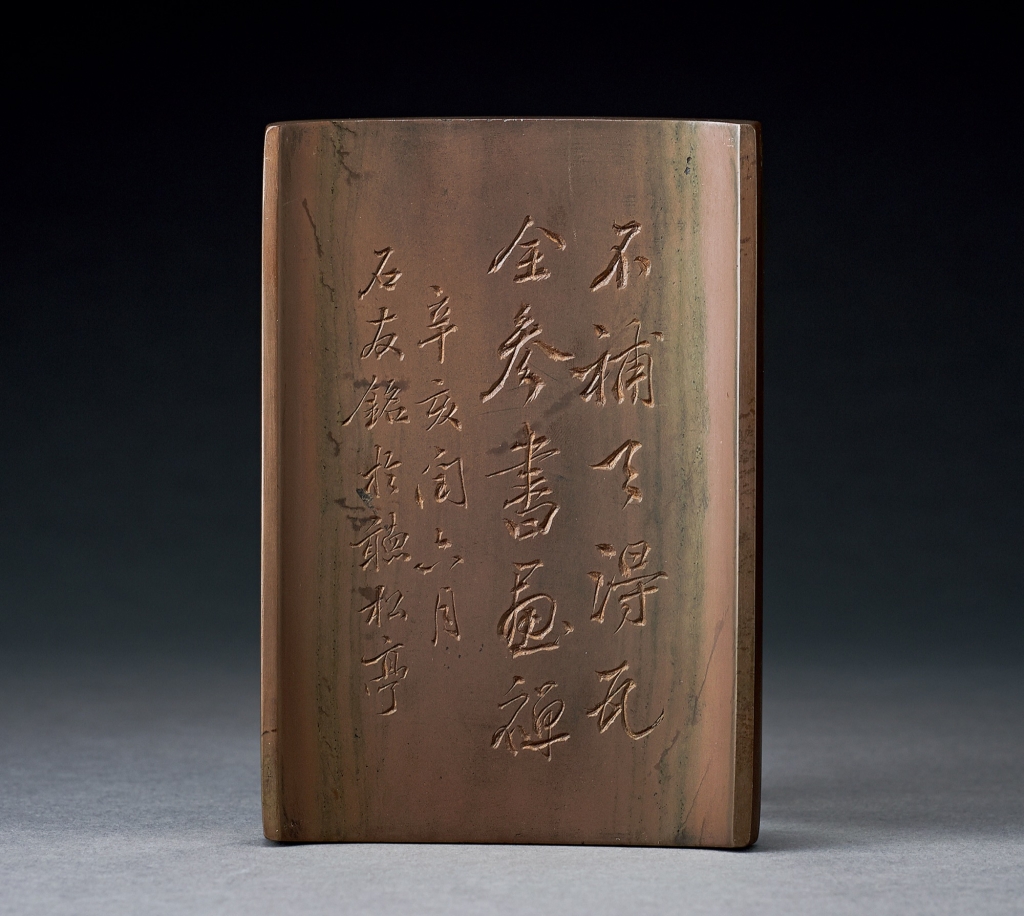 不補天得瓦
全參書畫禪
辛亥閏六月
石友銘於聽松亭